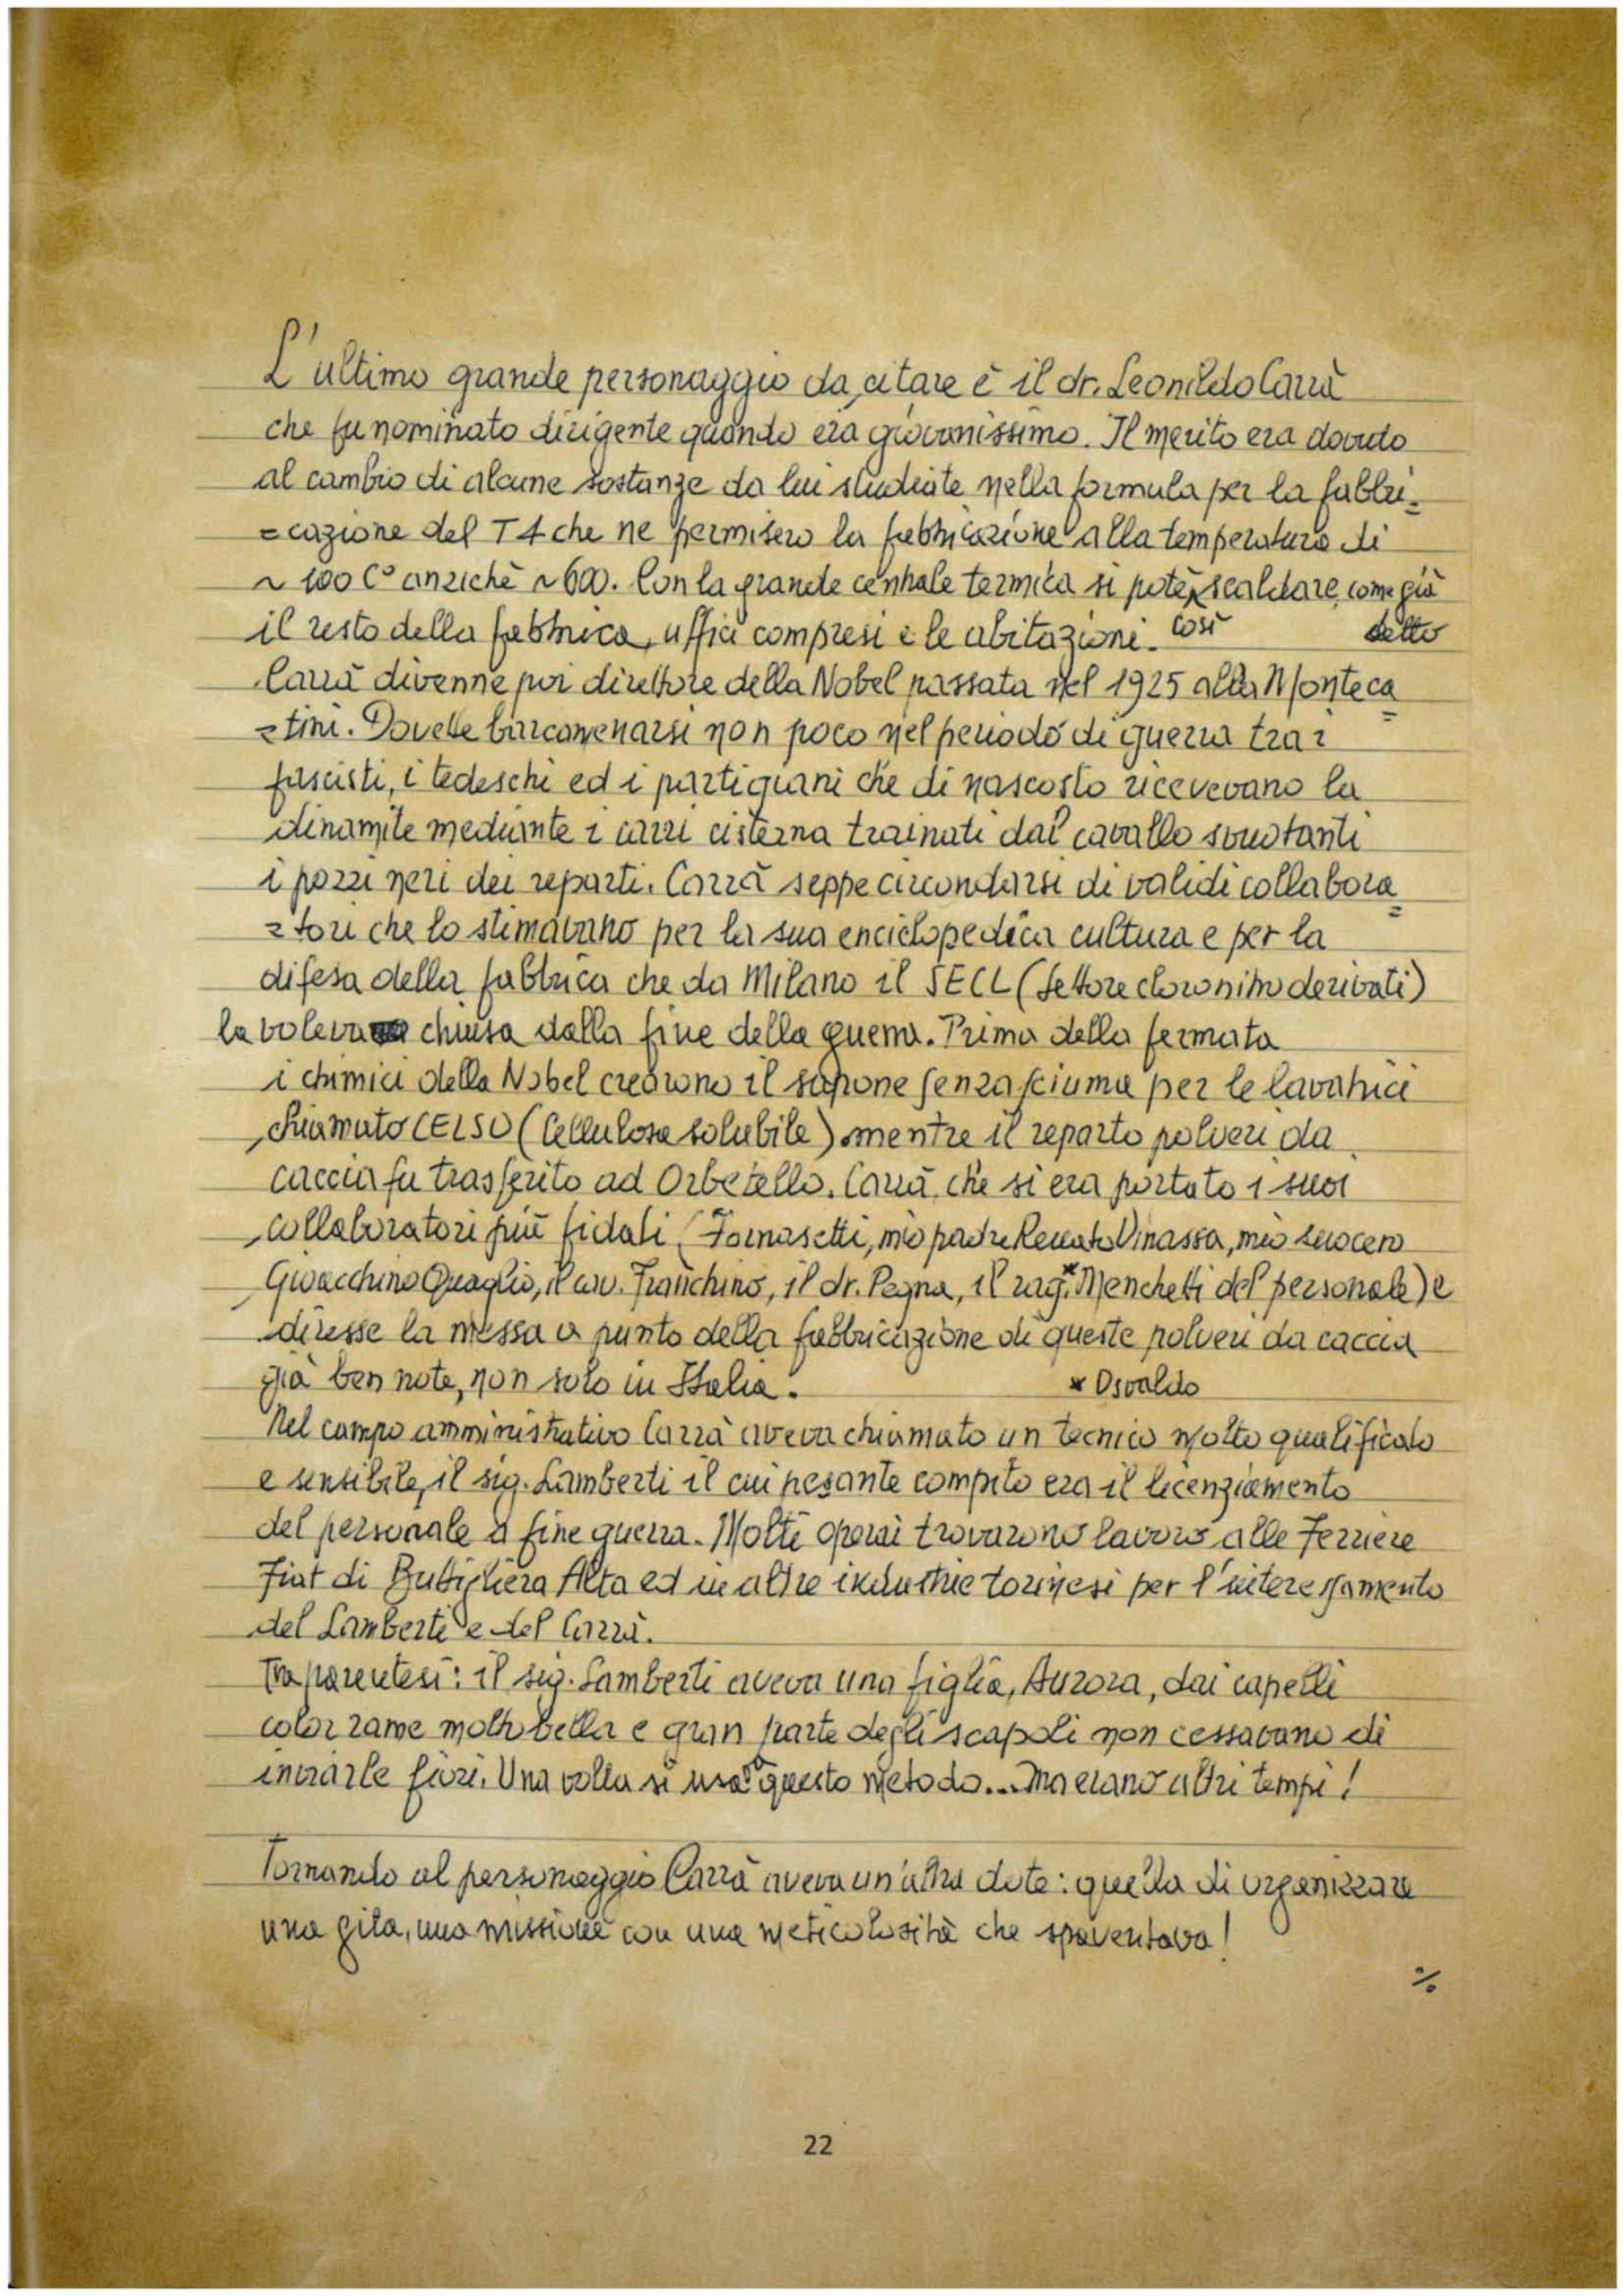 L'ultimo grande personaggio da citare è il dr. Leonildo Carrà
che fu nominato dirigente quando era giovanissimo. Il merito era dovuto
al cambio di alcune sostanze da lui studiate nella formula per la fabbri=
=cazione del T4 che ne permisero la fabbricazione alla temperatura di
~ 100 C° anzichè ~600. Con la grande centrale termica si potè scaldare, come già
il resto della fabbrica, uffici compresi e le abitazioni. così detto
Carrà divenne poi direttore della Nobel passata nel 1925 alla Monteca=
=tini. Dovette barcamenarsi non poco nel periodo di guerra tra i
fascisti, i tedeschi ed i partigiani che di nascosto ricevevano la
dinamite mediante i carri cisterna trainati dal cavallo svuotanti
i pozzi neri dei reparti. Carrà seppe circondarsi di validi collabora=
=tori che lo stimavano per la sua enciclopedica cultura e per la
difesa della fabbrica che da Milano il SECL (Settore cloronitro derivati)
la voleva chiusa dalla fine della guerra. Prima della fermata
i chimici della Nobel crearono il sapone senza sciuma per le lavatrici
chiamato CELSO (Cellulosa solubile) mentre il reparto polveri da
caccia fu trasferito ad Orbetello. Carrà, che si era portato i suoi
collaboratori più fidati (Fornasetti, mio padre Renato Vinassa, mio suocero
Gioacchino Quaglio, il cav. Franchino, il dr. Pegna, il rag.* Menchetti del personale) e
diresse la messa a punto della fabbricazione di queste polveri da caccia
già ben note, non solo in Italia. * Osvaldo
Nel campo amministrativo Carrà aveva chiamato un tecnico molto qualificato
e sensibile, il sig. Lamberti il cui pesante compito era il licenziamento
del personale a fine guerra. Molti operai trovarono lavoro alle Ferriere
Fiat di Buttigliera Alta ed in altre industrie torinesi per l'interessamento
del Lamberti e del Carrà.
Tra parentesi: il sig. Lamberti aveva una figlia, Aurora, dai capelli
color rame molto bella e gran parte degli scapoli non cessavano di
inviarle fiori. Una volta si usava questo metodo... ma erano altri tempi!
Tornando al personaggio Carrà aveva un'altra dote: quella di organizzare
una gita, una missione con una meticolosità che spaventava!
%
22